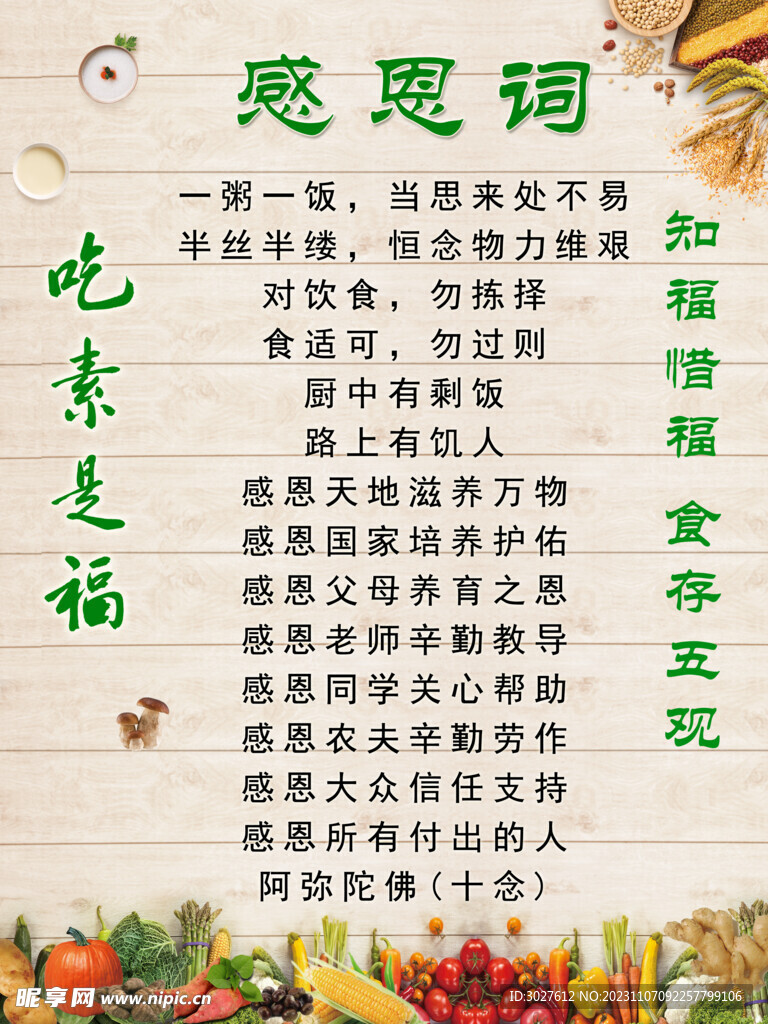 感恩词
一粥一饭，当思来处不易
半丝半缕，恒念物力维艰
对饮食，勿拣择
食适可，勿过则
厨中有剩饭
路上有饥人
感恩天地滋养万物
感恩国家培养护佑
感恩父母养育之恩
感恩老师辛勤教导
感恩同学关心帮助
感恩农夫辛勤劳作
感恩大众信任支持
感恩所有付出的人
阿弥陀佛(十念)
吃素是福
知福惜福 食存五观
昵享网 www.nipic.cn
ID:3027612 NO:20231107092257799106